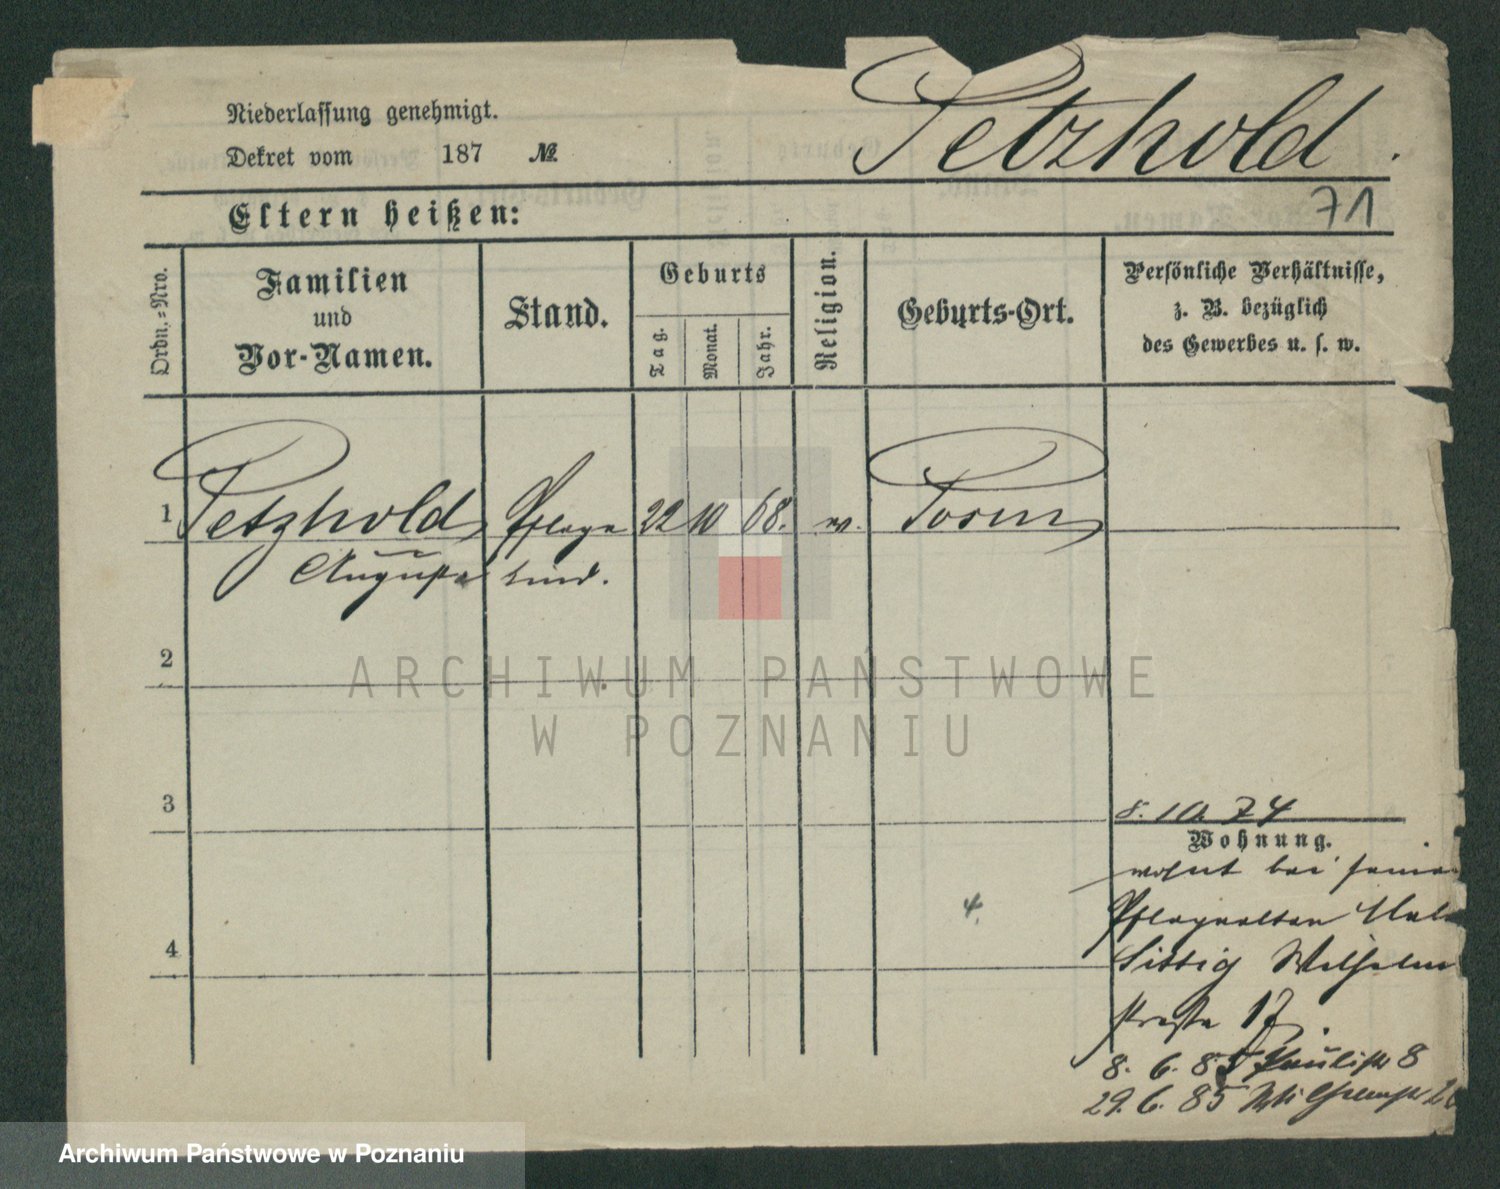 Niederlassung genehmigt.
Dekret vom 187 №
Petzhold.
71
Eltern heißen:
Ordn.=Nro.
Familien
und
Vor-Namen.
Stand.
Geburts
Tag.
Monat.
Jahr.
Religion.
Geburts-Ort.
Persönliche Verhältnisse,
z. B. bezüglich
des Gewerbes u. s. w.
1 Petzhold Pflege 22 10 68. Posen
August kind.
2
3
4
8. 10. 74
Wohnung.
wohnt bei seinen
Pflegeeltern
Sittig Wilhelm
straße 17.
8. 6. 85 Paulistr 8
29. 6. 85 Wilhelmstr
ARCHIWUM PAŃSTWOWE
W POZNANIU
Archiwum Państwowe w Poznaniu